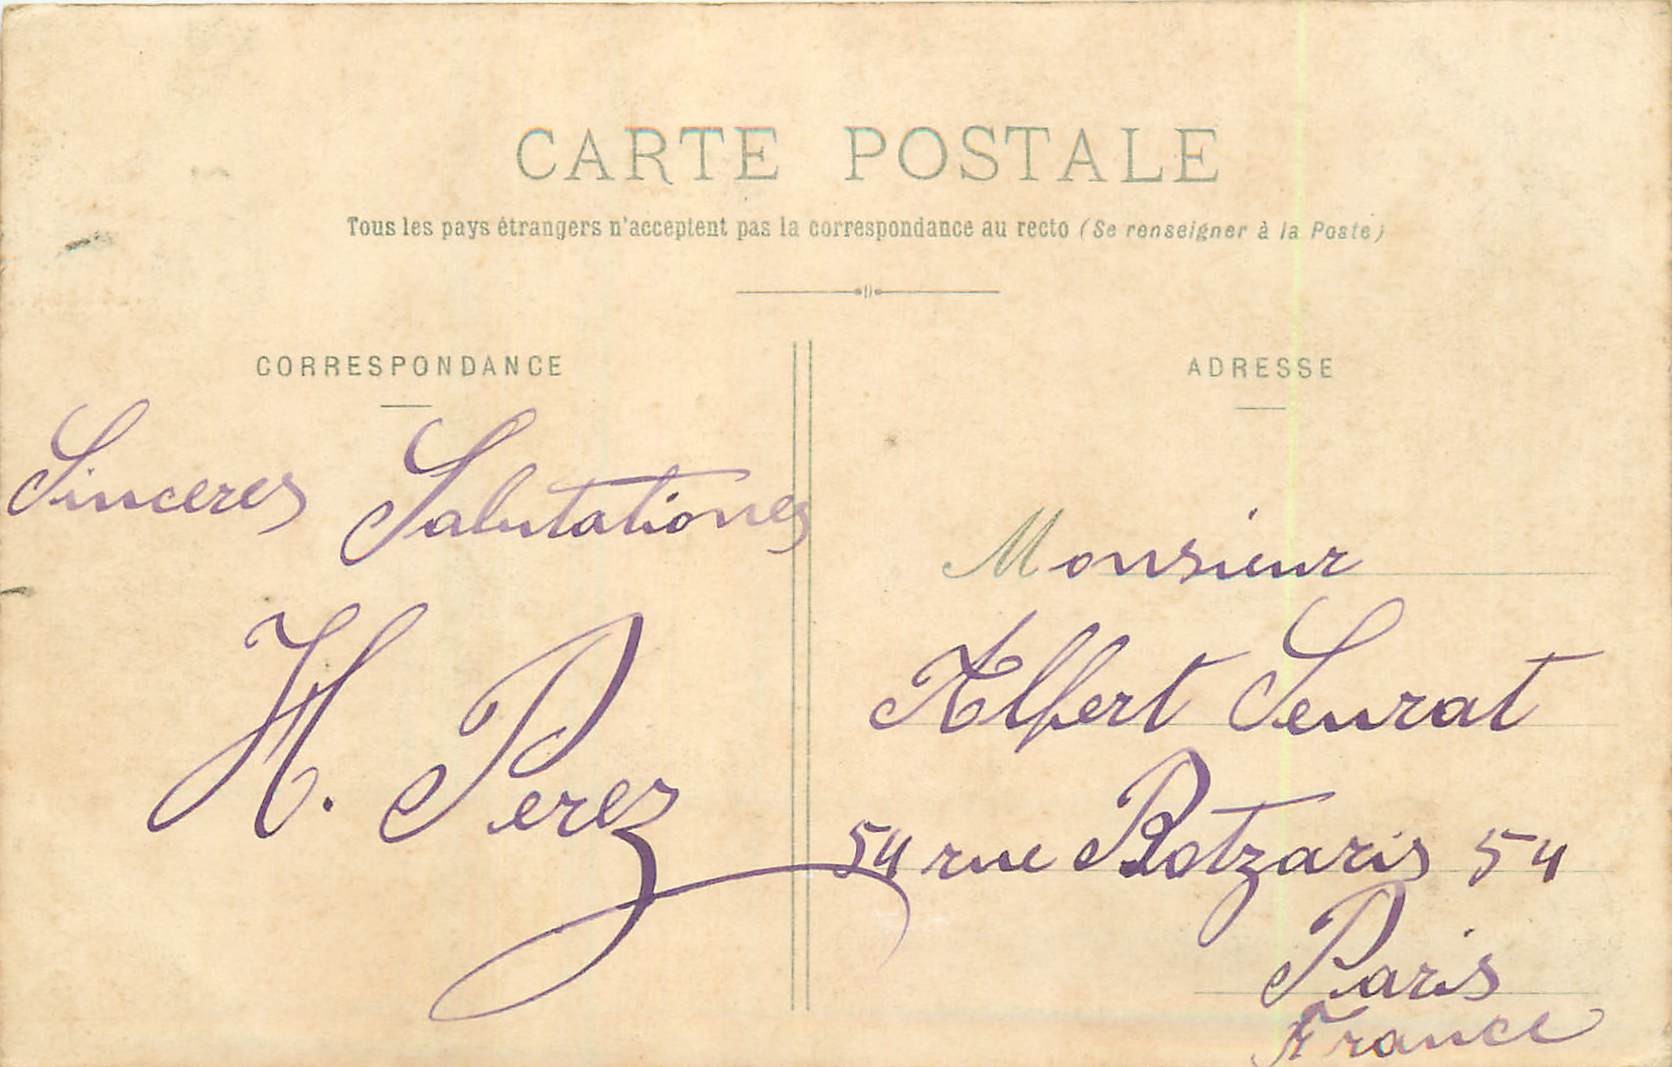 CARTE POSTALE
Tous les pays étrangers n'acceptent pas la correspondance au recto (Se renseigner à la Poste)
CORRESPONDANCE
Sinceres Salutationes
H. Perez
ADRESSE
Monsieur
Albert Seurat
54 rue Botzaris 54
Paris
France